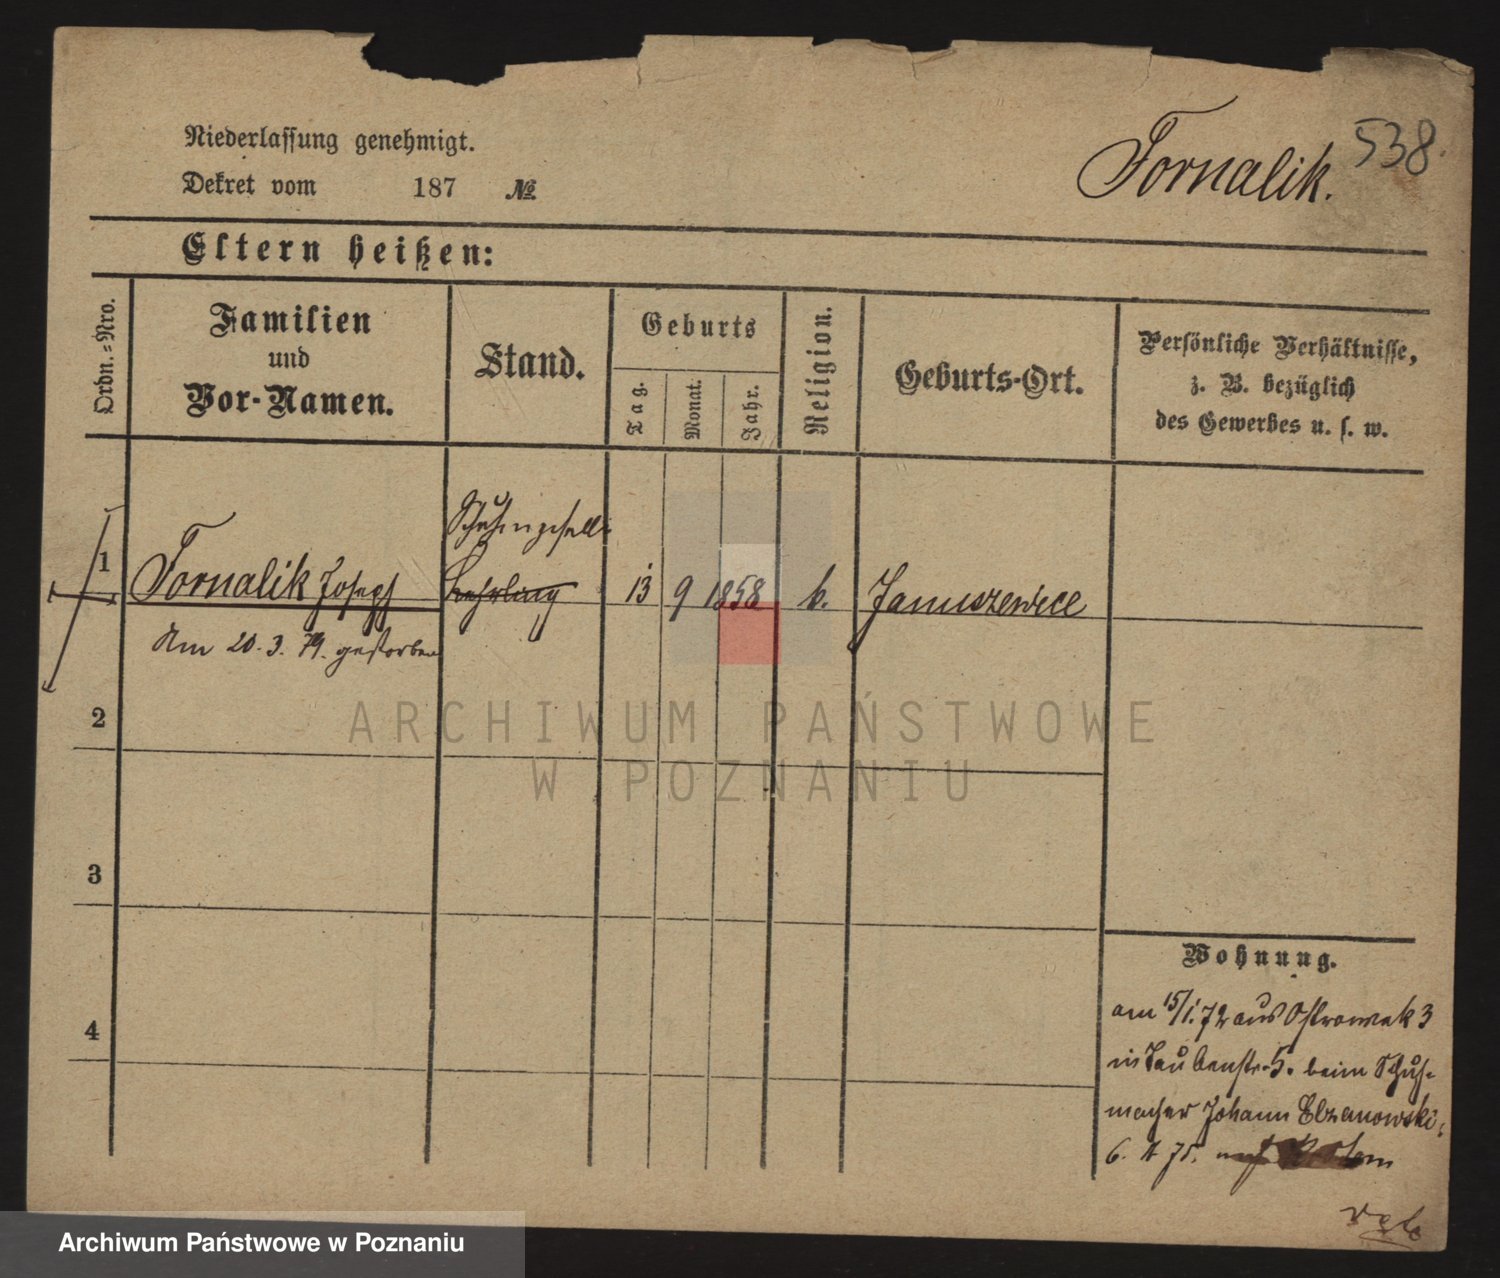 538.
Fornalik.
Niederlassung genehmigt.
Dekret vom 187 №
Eltern heißen:
Ordn.=Nro.
Familien
und
Vor-Namen.
Stand.
Geburts
Tag.
Monat.
Jahr.
Religion.
Geburts-Ort.
Persönliche Verhältnisse,
z. B. bezüglich
des Gewerbes u. s. w.
Schuhmgeselle
1 Fornalik Joseph Lehrling 13 9 1858 k. Januszewice
Am 20. 3. 79. gestorben
2
3
4
Wohnung.
am 15/1. 72 aus Ostrowek 3
in Taubenstr. 5. beim Schuh-
macher Johann Elzanowski.
6. 75.
ARCHIWUM PAŃSTWOWE
W POZNANIU
Archiwum Państwowe w Poznaniu